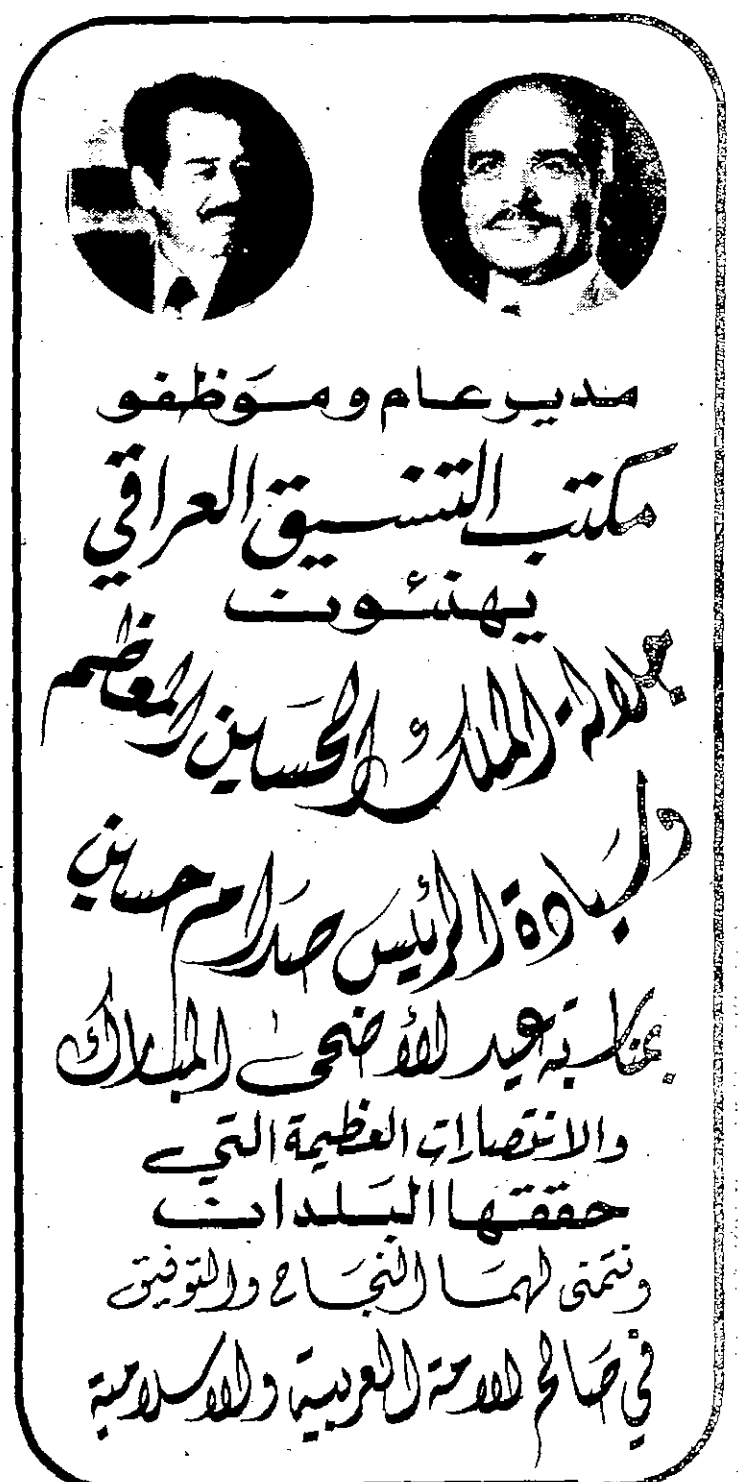 مدير عام وموظفو
مكتب التنسيق العراقي
يهنئون
جلالة الملك الحسين المعظم
والسيادة الرئيس صدام حسين
بمناسبة عيد الأضحى المبارك
والانتصارات العظيمة التي
حققتها البلدان
ونتمنى لهما النجاح والتوفيق
في صالح الامة العربية والاسلامية